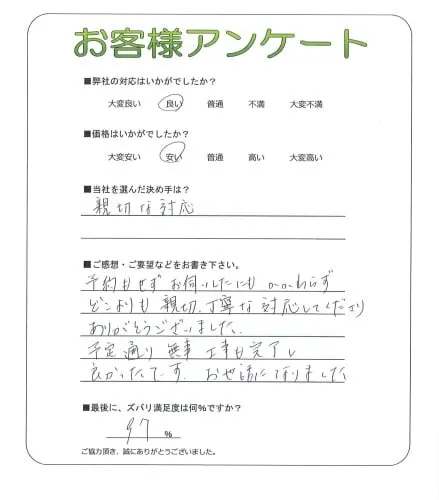 お客様アンケート
■弊社の対応はいかがでしたか?
大変良い 良い 普通 不満 大変不満
■価格はいかがでしたか?
大変安い 安い 普通 高い 大変高い
■当社を選んだ決め手は?
親切な対応
■ご感想・ご要望などをお書き下さい。
予約もせず お伺いしたにも かかわらず
どこよりも 親切、丁寧な 対応してくださり
ありがとうございました。
予定通り 無事 工事も完了し
良かったです。 お世話になりました
■最後に、ズバリ満足度は何%ですか?
97 %
ご協力頂き、誠にありがとうございました。